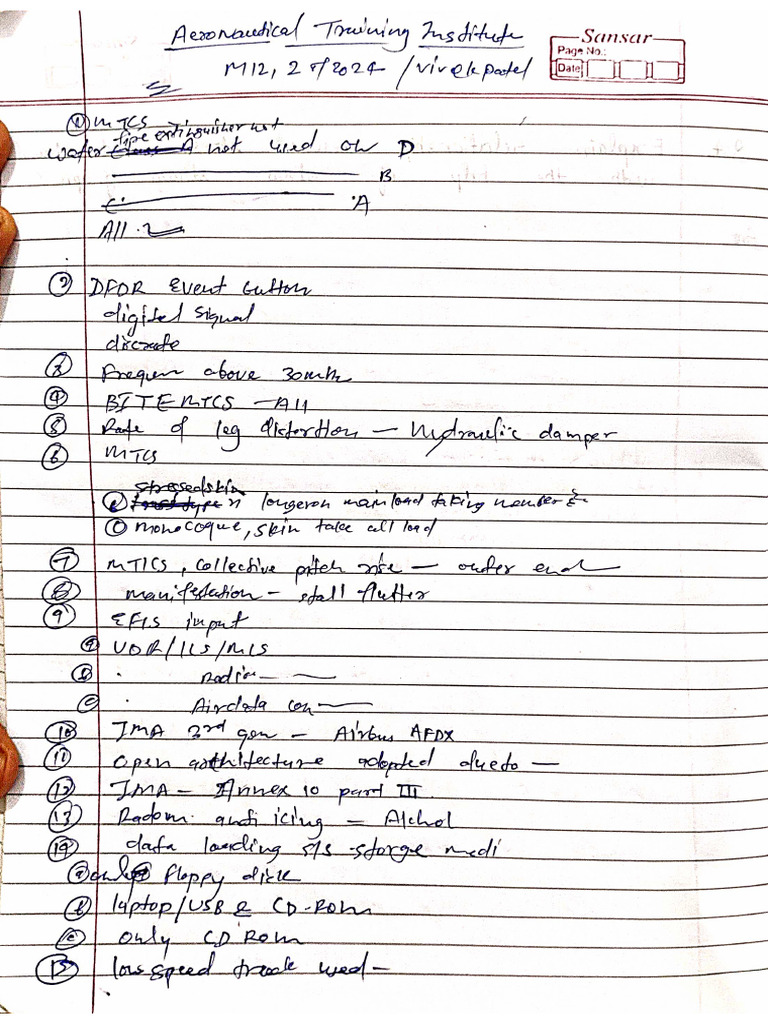 Aeronautical Training Institute
M12, 2 of 2024 / vivek patel
Sansar
Page No.:
Date
① MTCS
fire extinguisher not
water class A not used on D
B
C. .A
All.
② DFDR Event button
digital signal
discrate
③ frequen above 30mhz
④ BITE MTCS - All
⑤ Rate of leg distortion - Hydraulic damper
⑥ MTCS
stressed skin
longeron main load taking member
ⓒ monocoque, skin take all load
⑦ MTICS, collective pitch rise - outer end
⑧ manifestation - stall flutter
⑨ EFIS input
ⓐ VOR/ILS/MLS
ⓑ . Radio
ⓒ . Airdata con
⑩ IMA 3rd gen - Airbus AFDX
⑪ open architecture adopted dueto -
⑫ IMA - Annex 10 part III
⑬ Radom anti icing = Alchol
⑭ data loading s/s storge medi
ⓐ only floppy disk
ⓑ laptop/USB & CD-ROM
ⓒ only CD ROM
⑮ low speed track used -